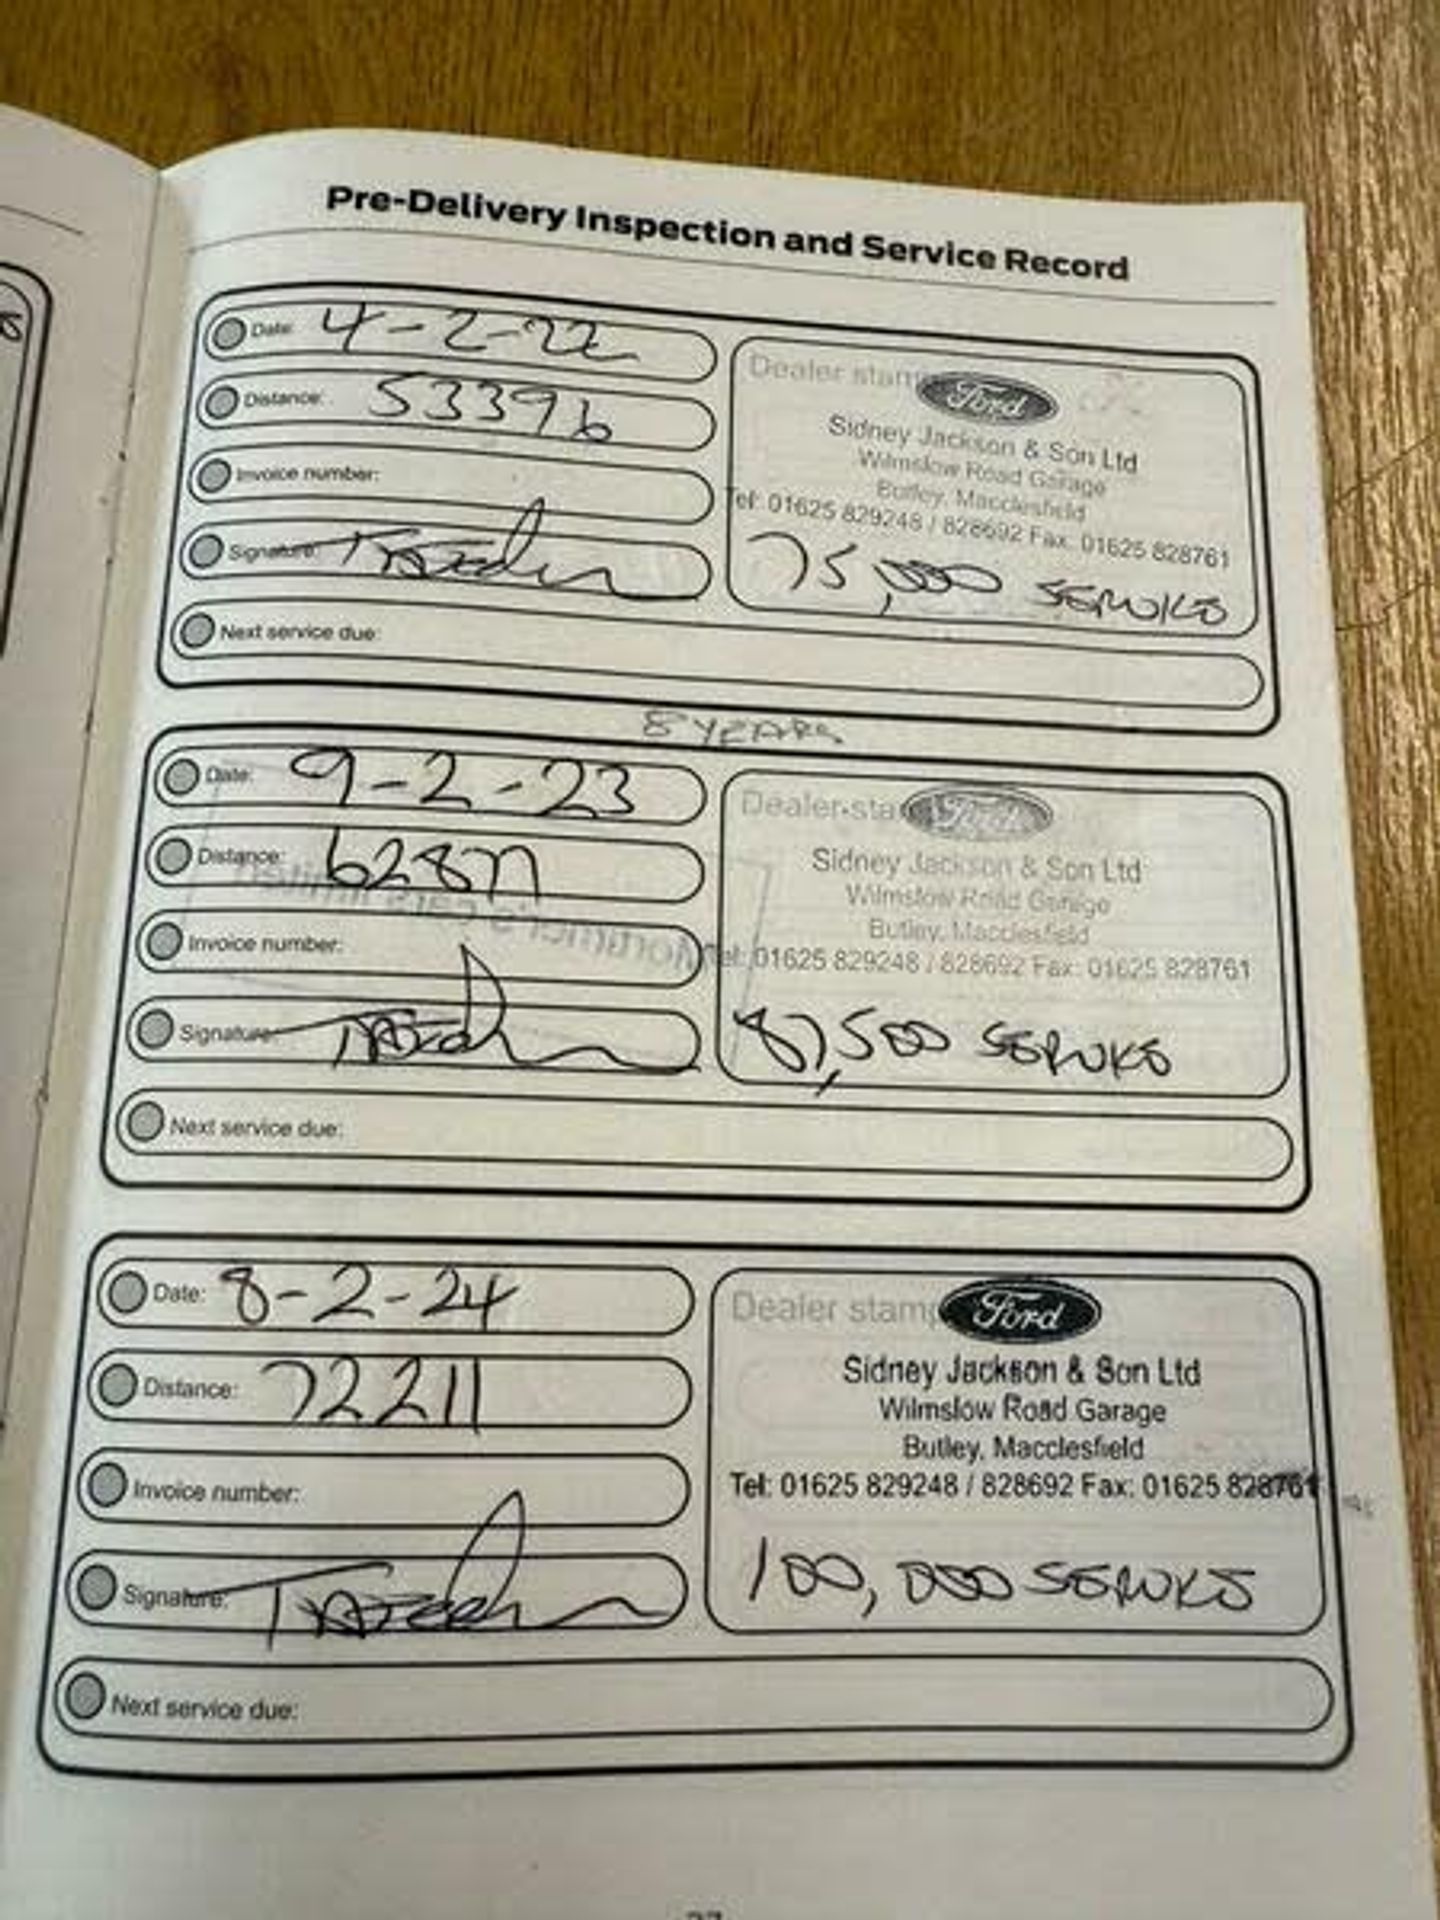 Pre-Delivery Inspection and Service Record
Date: 4-2-22
Distance: 53396
Invoice number:
Signature:
Next service due:
Dealer stamp
Ford
Sidney Jackson & Son Ltd
Wilmslow Road Garage
Butley, Macclesfield
Tel: 01625 829248 / 828692 Fax: 01625 828761
75,000 SERVICE
8 YEARS
Date: 9-2-23
Distance: 62877
Invoice number:
Signature:
Next service due:
Dealer sta
Ford
Sidney Jackson & Son Ltd
Wilmslow Road Garage
Butley, Macclesfield
Tel: 01625 829248 / 828692 Fax: 01625 828761
87,500 SERVICE
Date: 8-2-24
Distance: 72211
Invoice number:
Signature:
Next service due:
Dealer stamp
Ford
Sidney Jackson & Son Ltd
Wilmslow Road Garage
Butley, Macclesfield
Tel: 01625 829248 / 828692 Fax: 01625 828761
100,000 SERVICE